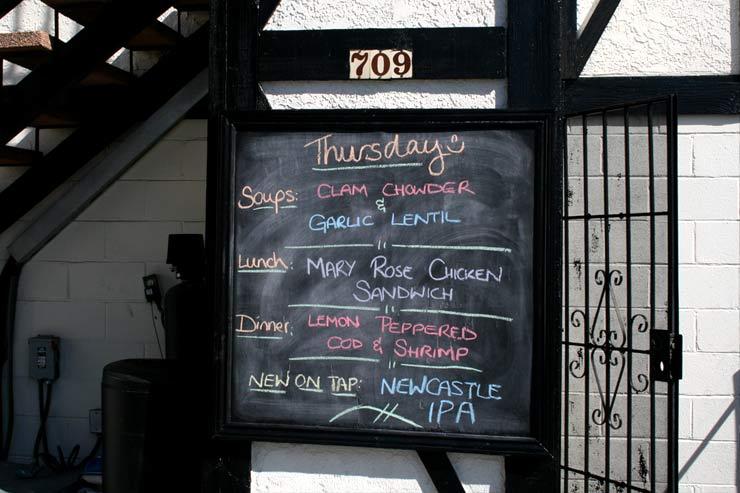 709
Thursday
Soups: CLAM CHOWDER
&
GARLIC LENTIL
Lunch: MARY ROSE CHICKEN
SANDWICH
Dinner: LEMON PEPPERED
COD & SHRIMP
NEW ON TAP: NEWCASTLE
IPA